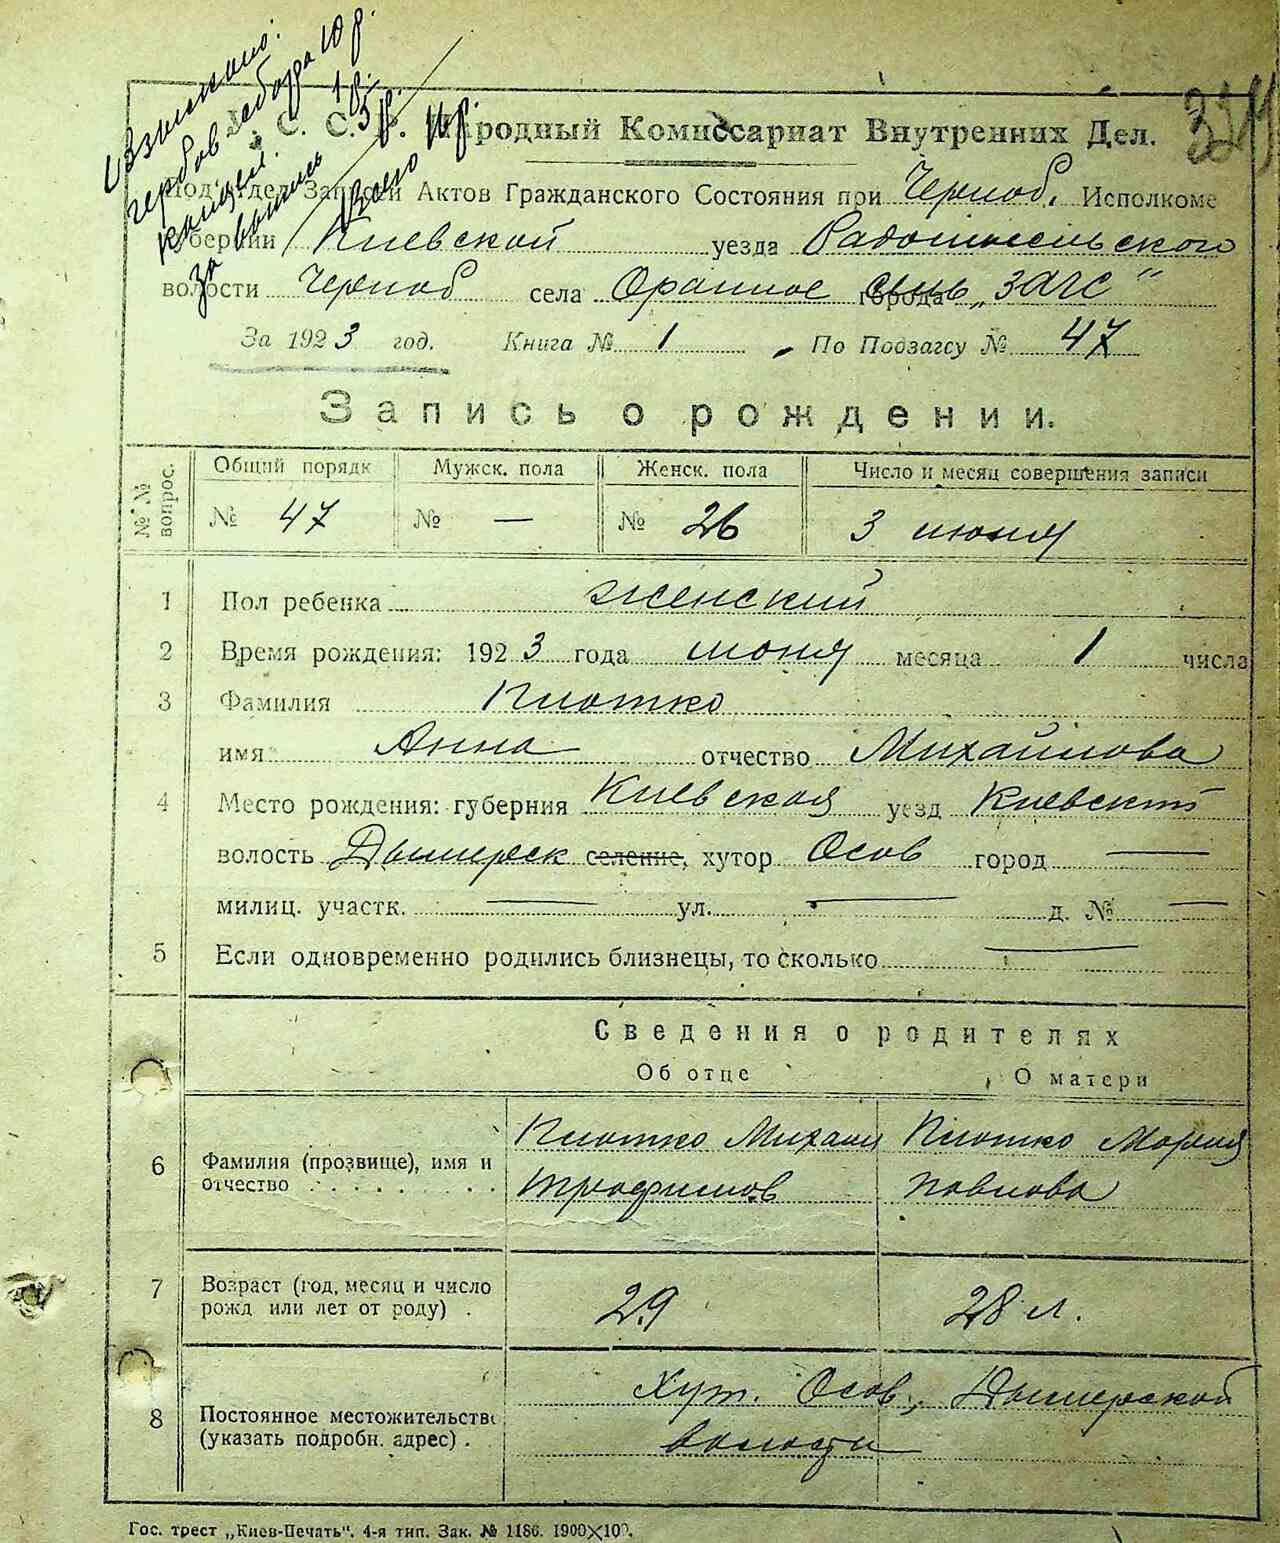 Взыскано:
гербов. сбора 10 р.
канцел. 1 р.
За бланк 3 р.
Всего 14 р.
У. С. С. Р. Народный Комиссариат Внутренних Дел.
Под'отдел Записей Актов Гражданского Состояния при Черноб. Исполкоме
губернии Киевской уезда Радомысельского
волости Черноб села Оранное города „ЗАГС"
За 1923 год. Книга № 1 По Подзагсу № 47
Запись о рождении.
№№ вопрос. Общий порядк Мужск. пола Женск. пола Число и месяц совершения записи
№ 47 № — № 26 3 июня
1 Пол ребенка женский
2 Время рождения: 1923 года июня месяца 1 числа
3 Фамилия Плотко
имя Анна отчество Михайлова
4 Место рождения: губерния Киевская уезд Киевский
волость Дымерск селение, хутор Осов город —
милиц. участк. — ул. — д. № —
5 Если одновременно родились близнецы, то сколько —
Сведения о родителях
Об отце О матери
Плотко Михаил Плотко Мария
6 Фамилия (прозвище), имя и
отчество Трофимов Павлова
7 Возраст (год, месяц и число
рожд или лет от роду) . 29 28 л.
Хут. Осов, Дымерской
8 Постоянное местожительство
(указать подробн. адрес) . волости
Гос. трест „Киев-Печать". 4-я тип. Зак. № 1186. 1900×100.